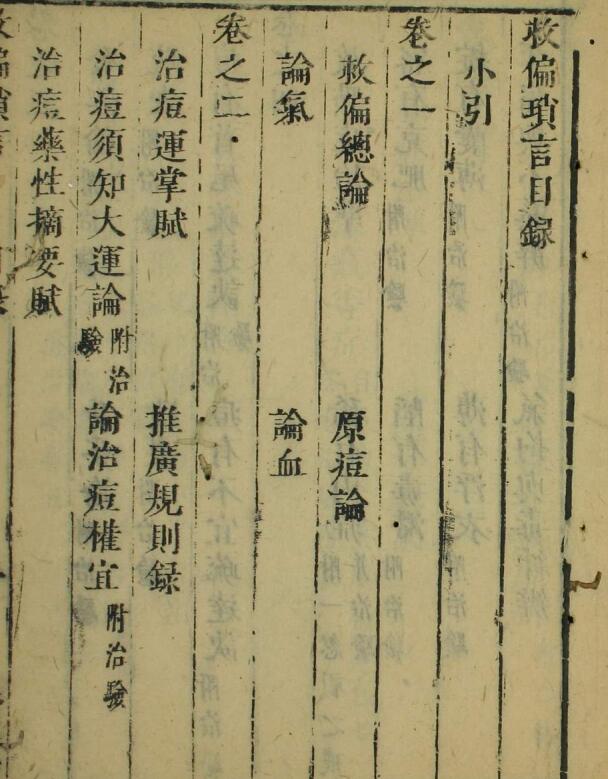 救偏瑣言目錄
小引
卷之一
救偏總論 原痘論
論氣 論血
卷之二
治痘運掌賦 推廣規則錄
治痘須知大運論附治驗 論治痘權宜附治驗
治痘藥性摘要賦
救偏瑣言